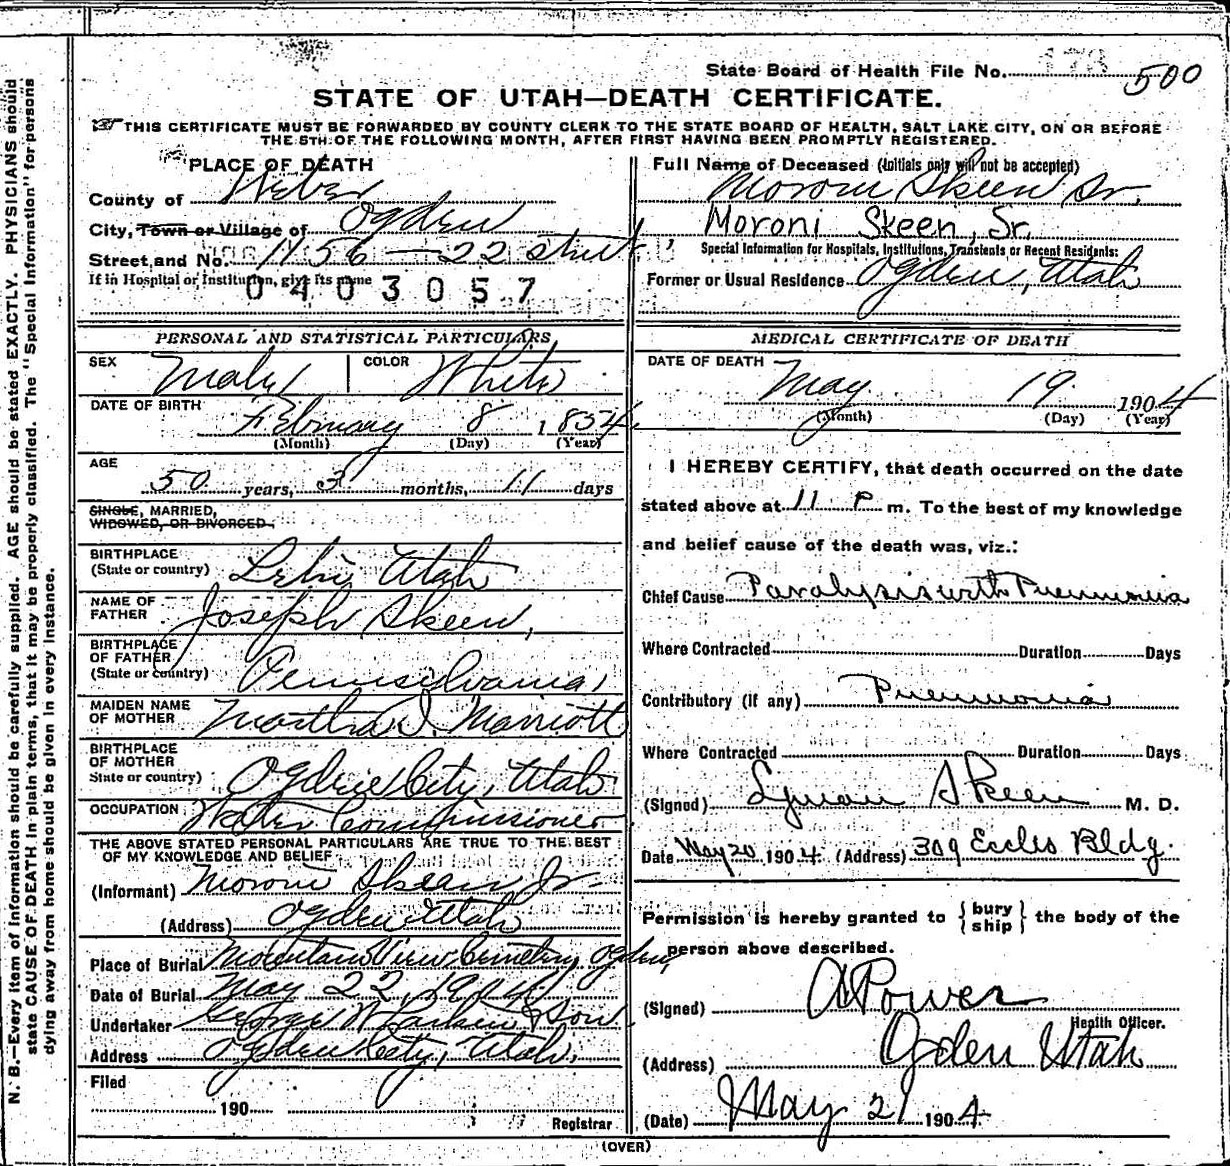 State Board of Health File No. 500
STATE OF UTAH—DEATH CERTIFICATE.
THIS CERTIFICATE MUST BE FORWARDED BY COUNTY CLERK TO THE STATE BOARD OF HEALTH, SALT LAKE CITY, ON OR BEFORE
THE 5TH OF THE FOLLOWING MONTH, AFTER FIRST HAVING BEEN PROMPTLY REGISTERED.
PLACE OF DEATH
County of Weber
City, Town or Village of Ogden
Street and No. 1156 — 22 street
If in Hospital or Institution, give its name
0403057
PERSONAL AND STATISTICAL PARTICULARS
SEX Male COLOR White
DATE OF BIRTH
February 8, 1854
(Month) (Day) (Year)
AGE
50 years, 3 months, 11 days
SINGLE, MARRIED,
WIDOWED, OR DIVORCED
BIRTHPLACE
(State or country) Lehi, Utah
NAME OF
FATHER Joseph Skeen,
BIRTHPLACE
OF FATHER
(State or country) Pennsilvania,
MAIDEN NAME
OF MOTHER Martha D. Marriott
BIRTHPLACE
OF MOTHER
State or country) Ogden City, Utah
OCCUPATION Water Commissioner
THE ABOVE STATED PERSONAL PARTICULARS ARE TRUE TO THE BEST
OF MY KNOWLEDGE AND BELIEF
(Informant) Moroni Skeen Jr.
(Address) Ogden Utah
Place of Burial Mountain View Cemetery Ogden,
Date of Burial May 22, 1904
Undertaker George W Larkin & Son.
Address Ogden City, Utah.
Filed
190
Registrar
Full Name of Deceased (Initials only will not be accepted)
Moroni Skeen Sr.
Moroni Skeen, Sr
Special Information for Hospitals, Institutions, Transients or Recent Residents:
Former or Usual Residence Ogden, Utah
MEDICAL CERTIFICATE OF DEATH
DATE OF DEATH
May 19 1904
(Month) (Day) (Year)
I HEREBY CERTIFY, that death occurred on the date
stated above at 11 P m. To the best of my knowledge
and belief cause of the death was, viz.:
Chief Cause Paralysis with Pneumonia
Where Contracted Duration Days
Contributory (if any) Pneumonia
Where Contracted Duration Days
(Signed) Lyman Skeen M. D.
Date May 20 1904. (Address) 309 Eccles Bldg.
Permission is hereby granted to { bury ship } the body of the
person above described.
(Signed) A Power
Health Officer.
(Address) Ogden Utah
(Date) May 21 1904.
(OVER)
N. B.—Every item of information should be carefully supplied. AGE should be stated EXACTLY. PHYSICIANS should
state CAUSE OF DEATH in plain terms, that it may be properly classified. The "Special Information" for persons
dying away from home should be given in every instance.